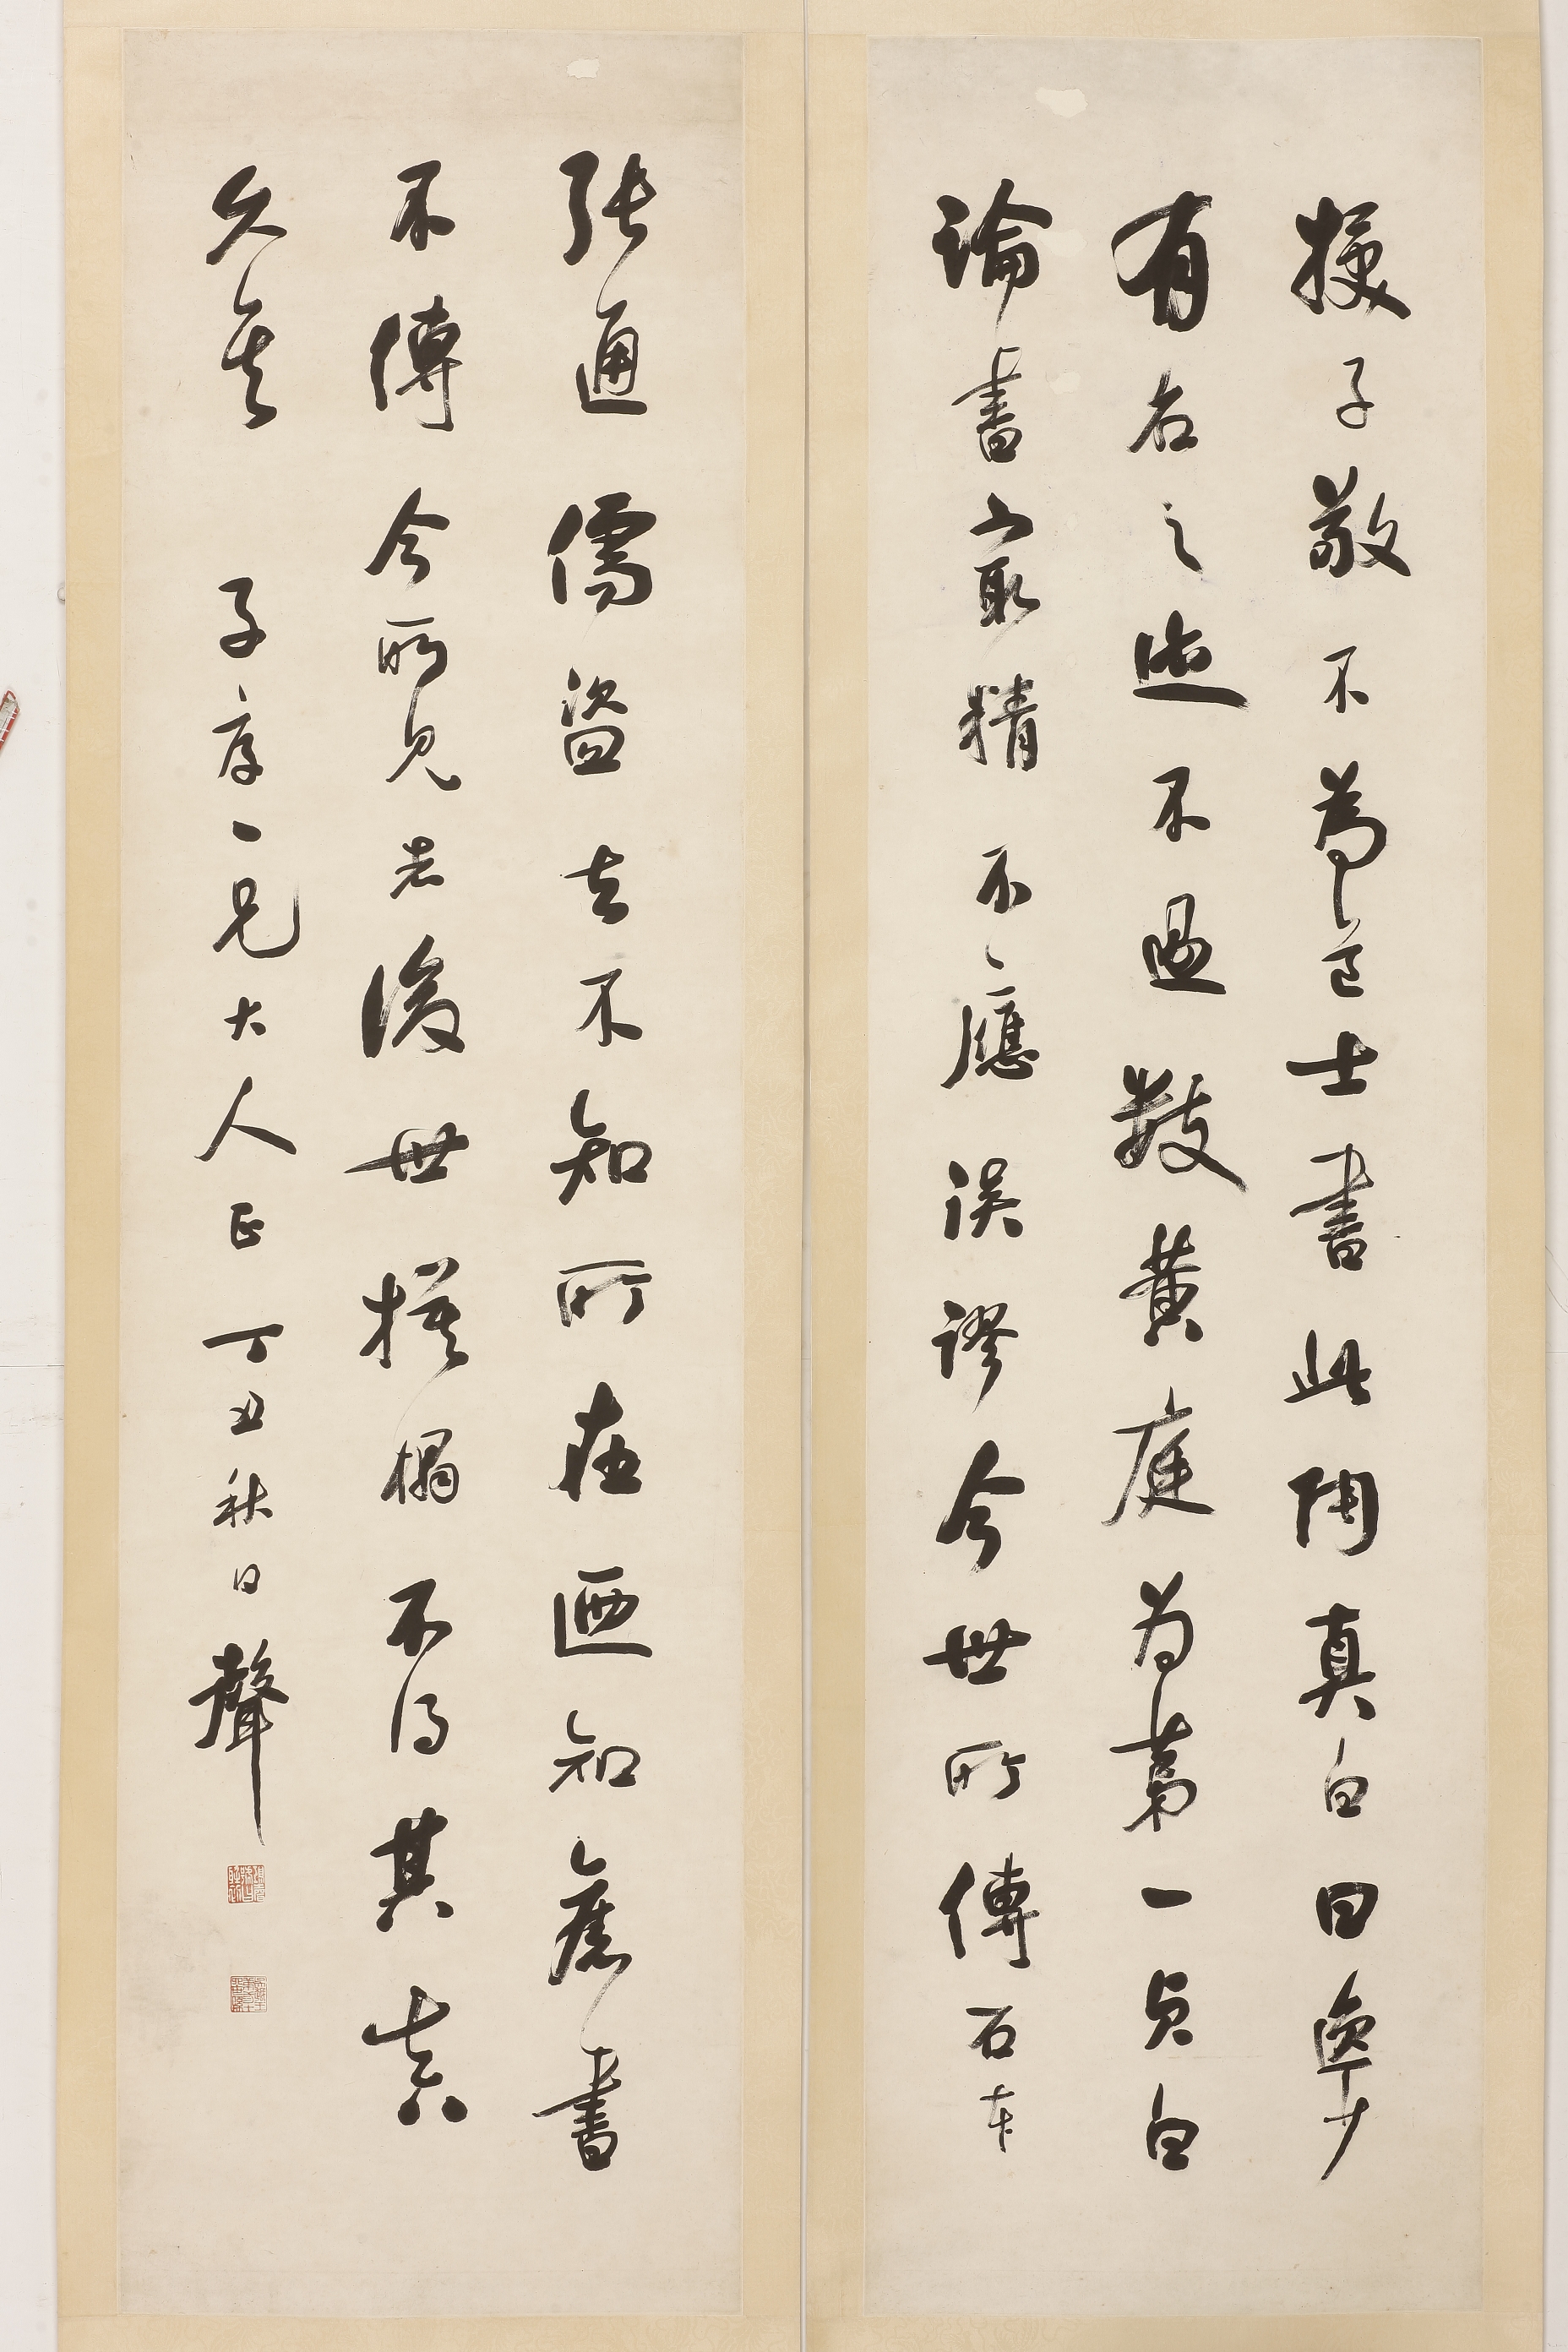 授子敬不為道士書此陶真白曰逸少
有名之迹不過數黃庭為第一貞白
論書最精不應誤謬今世所傳石本
張通儒盜去不知所在迺知舊書
不傳今所見者後世摸榻不得其真
久矣 子序一兄大人正 丁丑秋日 聲